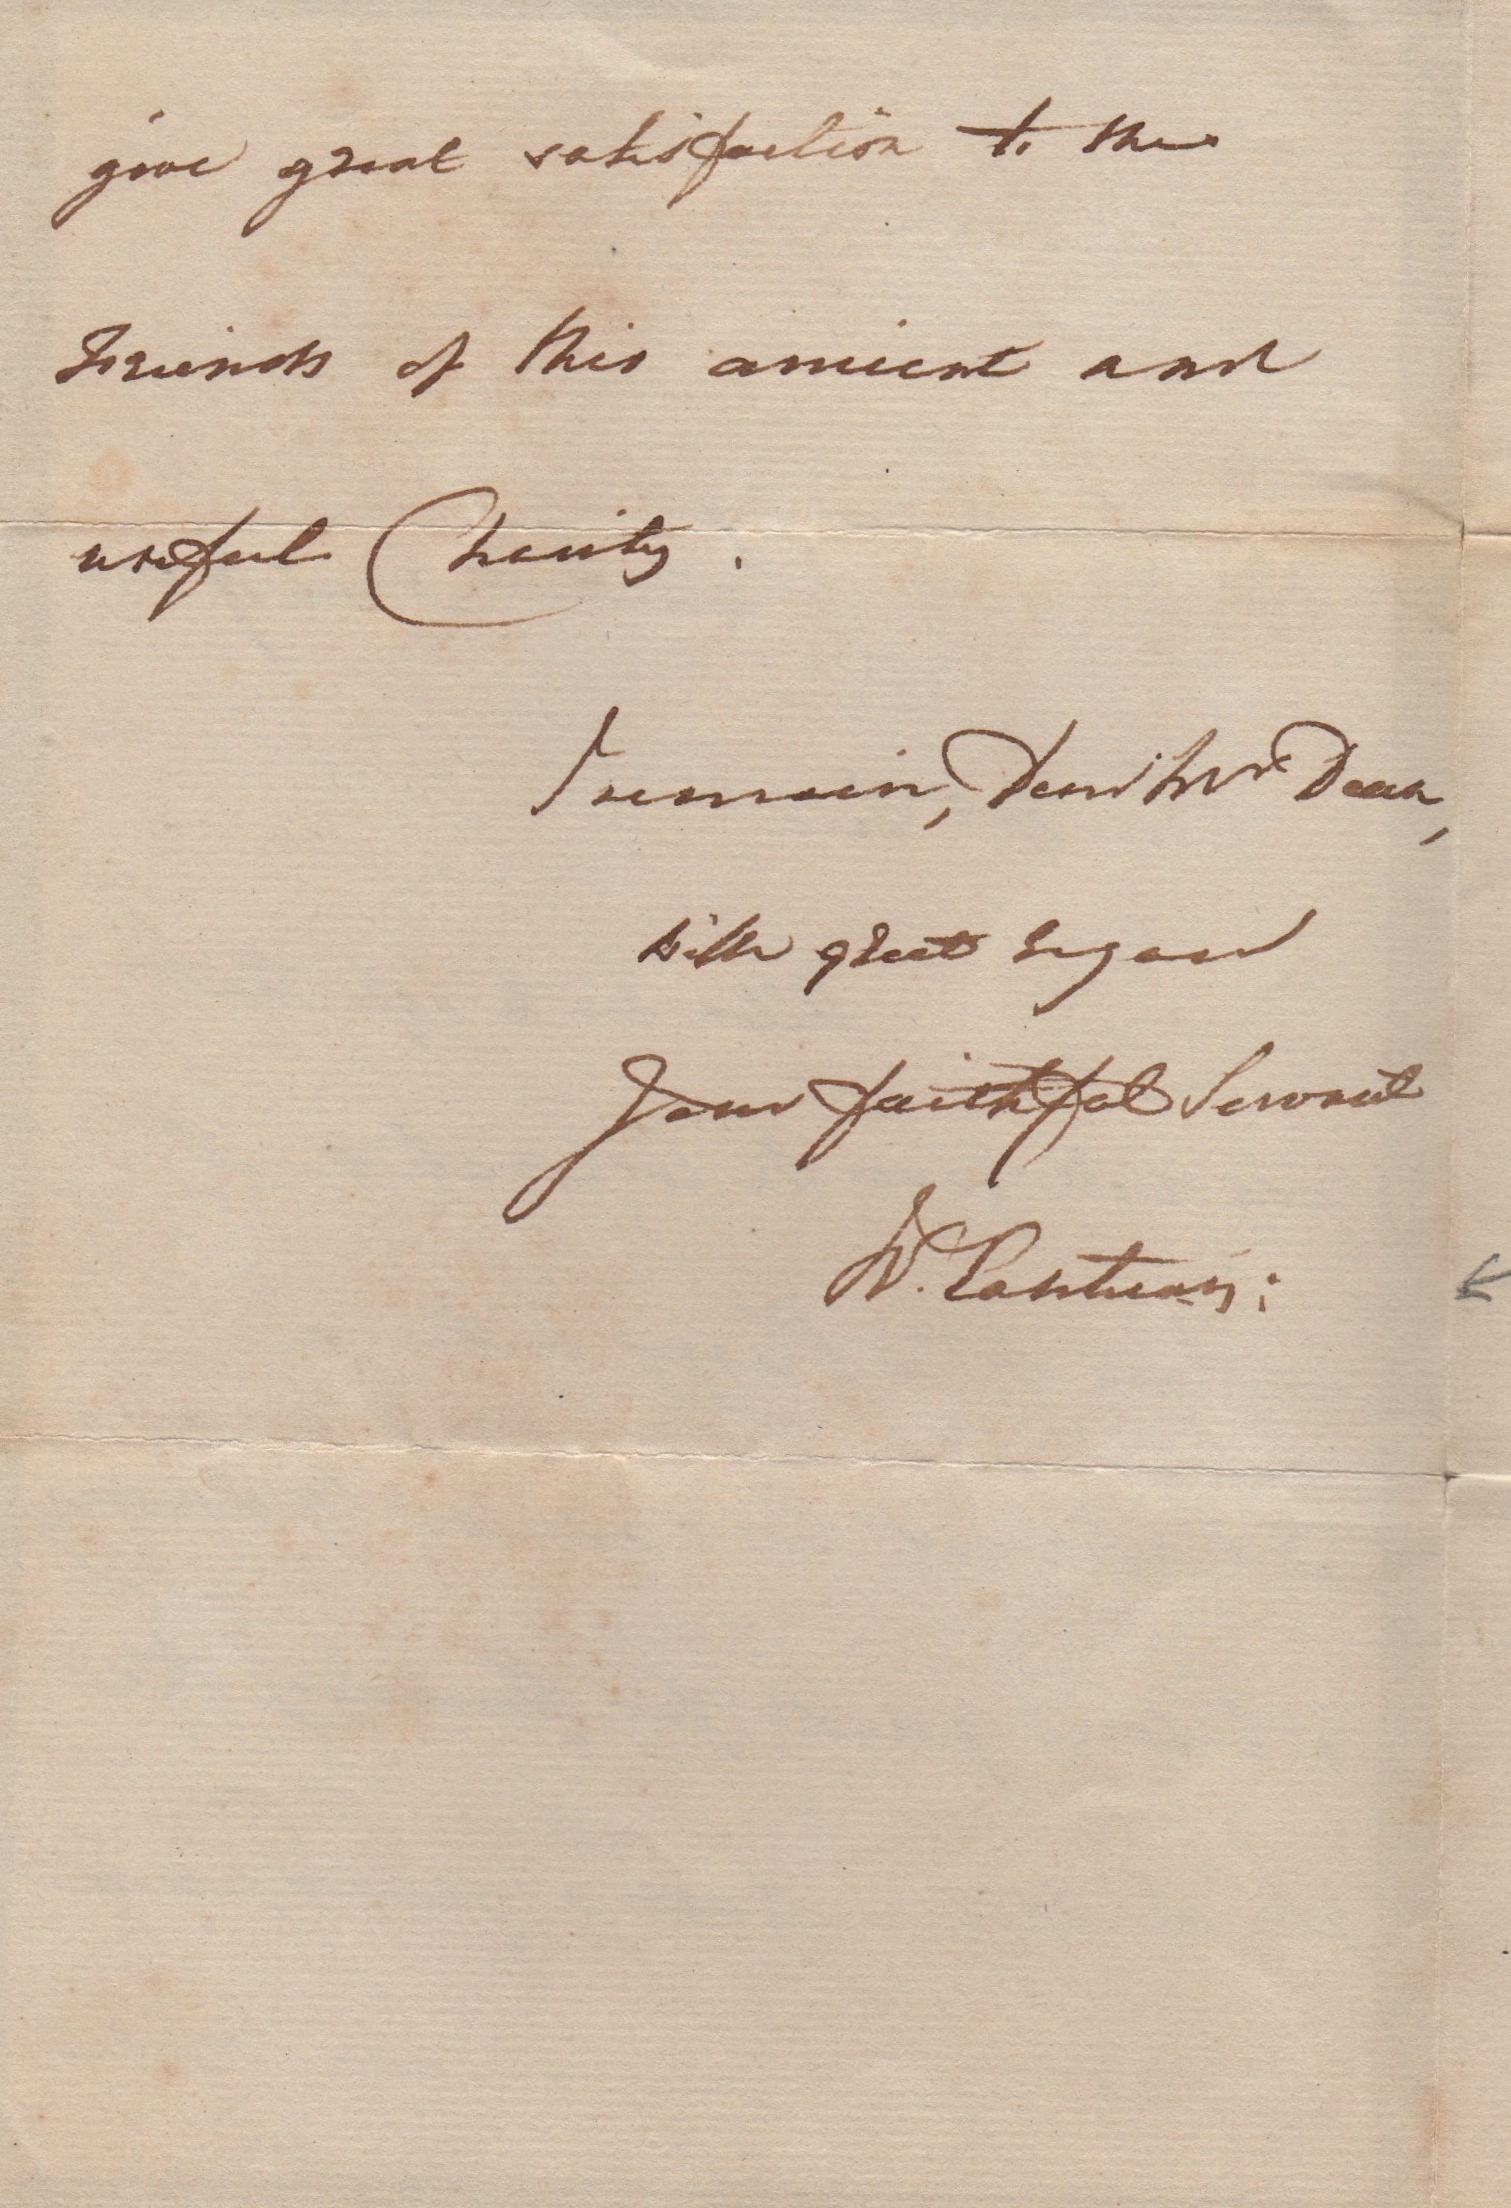 give great satisfaction to the
Friends of this ancient and
useful Charity.
I remain, Dear Mr Dean,
with great regard
Your faithful Servant
W. Cantuar: